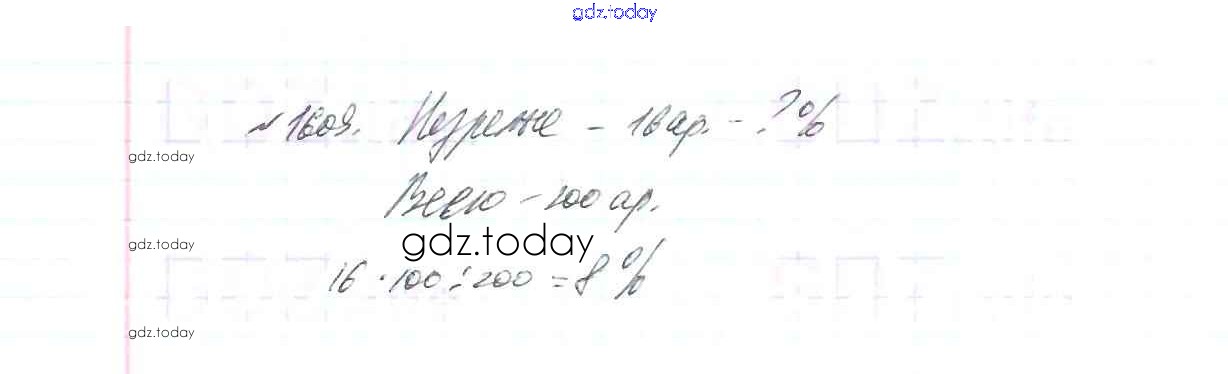 gdz.today
№1609. Незрелые – 16 ар. – ? %
gdz.today
Всего – 200 ар.
gdz.today
gdz.today
16 · 100 : 200 = 8 %
gdz.today